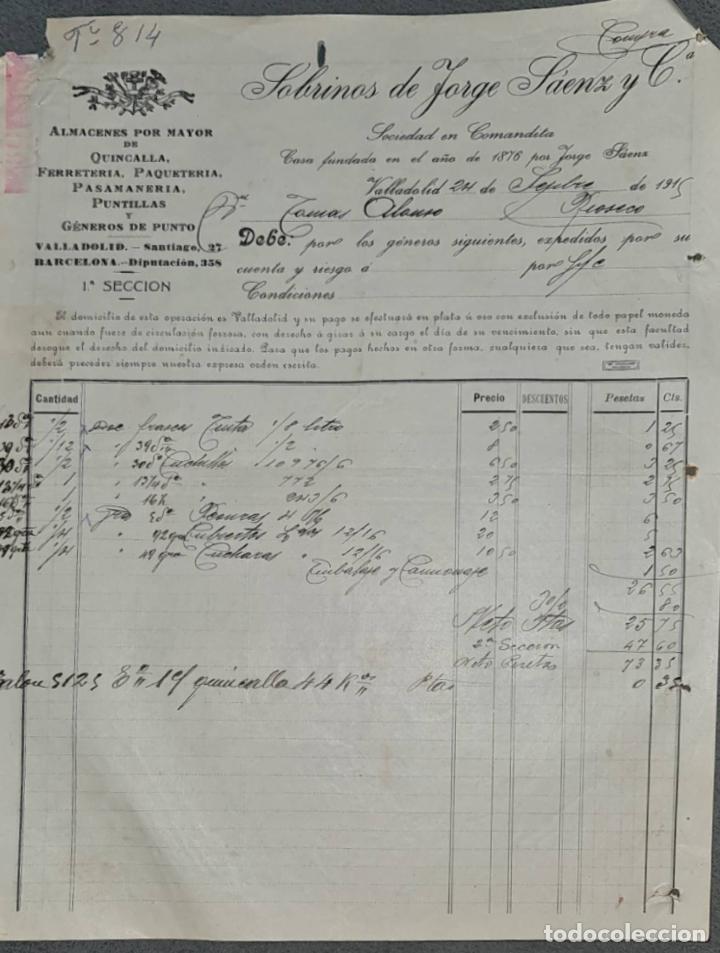 Fª 814
Compra
Sobrinos de Jorge Sáenz y Cª
Sociedad en Comandita
Casa fundada en el año de 1876 por Jorge Sáenz
ALMACENES POR MAYOR
DE
QUINCALLA,
FERRETERIA, PAQUETERIA,
PASAMANERIA,
PUNTILLAS
Y
GÉNEROS DE PUNTO
VALLADOLID.—Santiago, 27
BARCELONA.—Diputación, 358
1.ª SECCION
Valladolid 24 de Sepbre de 1915
Tomas Alonso Rioseco
Debe: por los géneros siguientes, expedidos por su
cuenta y riesgo á por
Condiciones
El domicilio de esta operación es Valladolid y su pago se efectuará en plata ú oro con exclusión de todo papel moneda
aun cuando fuere de circulación forzosa, con derecho á girar á su cargo el día de su vencimiento, sin que esta facultad
derogue el derecho del domicilio indicado. Para que los pagos hechos en otra forma, cualquiera que sea, tengan validez,
deberá preceder siempre nuestra expresa orden escrita.
Cantidad Precio DESCUENTOS Pesetas Cts.
1/2 Doc frascos Tinta 1/8 litro 2 50 1 25
1/12 " 39 dª 1/2 8 0 67
1/2 " 30 dª Cuchillos 10976/6 6 50 3 25
1 " 772 2 75 2 75
1 " 16 3/6 3 50 3 50
1/2 12 6
1/4 " Cubiertos 12/16 20 5
1/4 " Cucharas " 12/16 10 50 2 63
Embalaje y Camionaje 1 50
26 55
3 % 80
Neto Ptas 25 75
2ª Sección 47 60
Neto Pesetas 73 35
5125 quincalla 44 Kos Ptas 0 35
todocoleccion